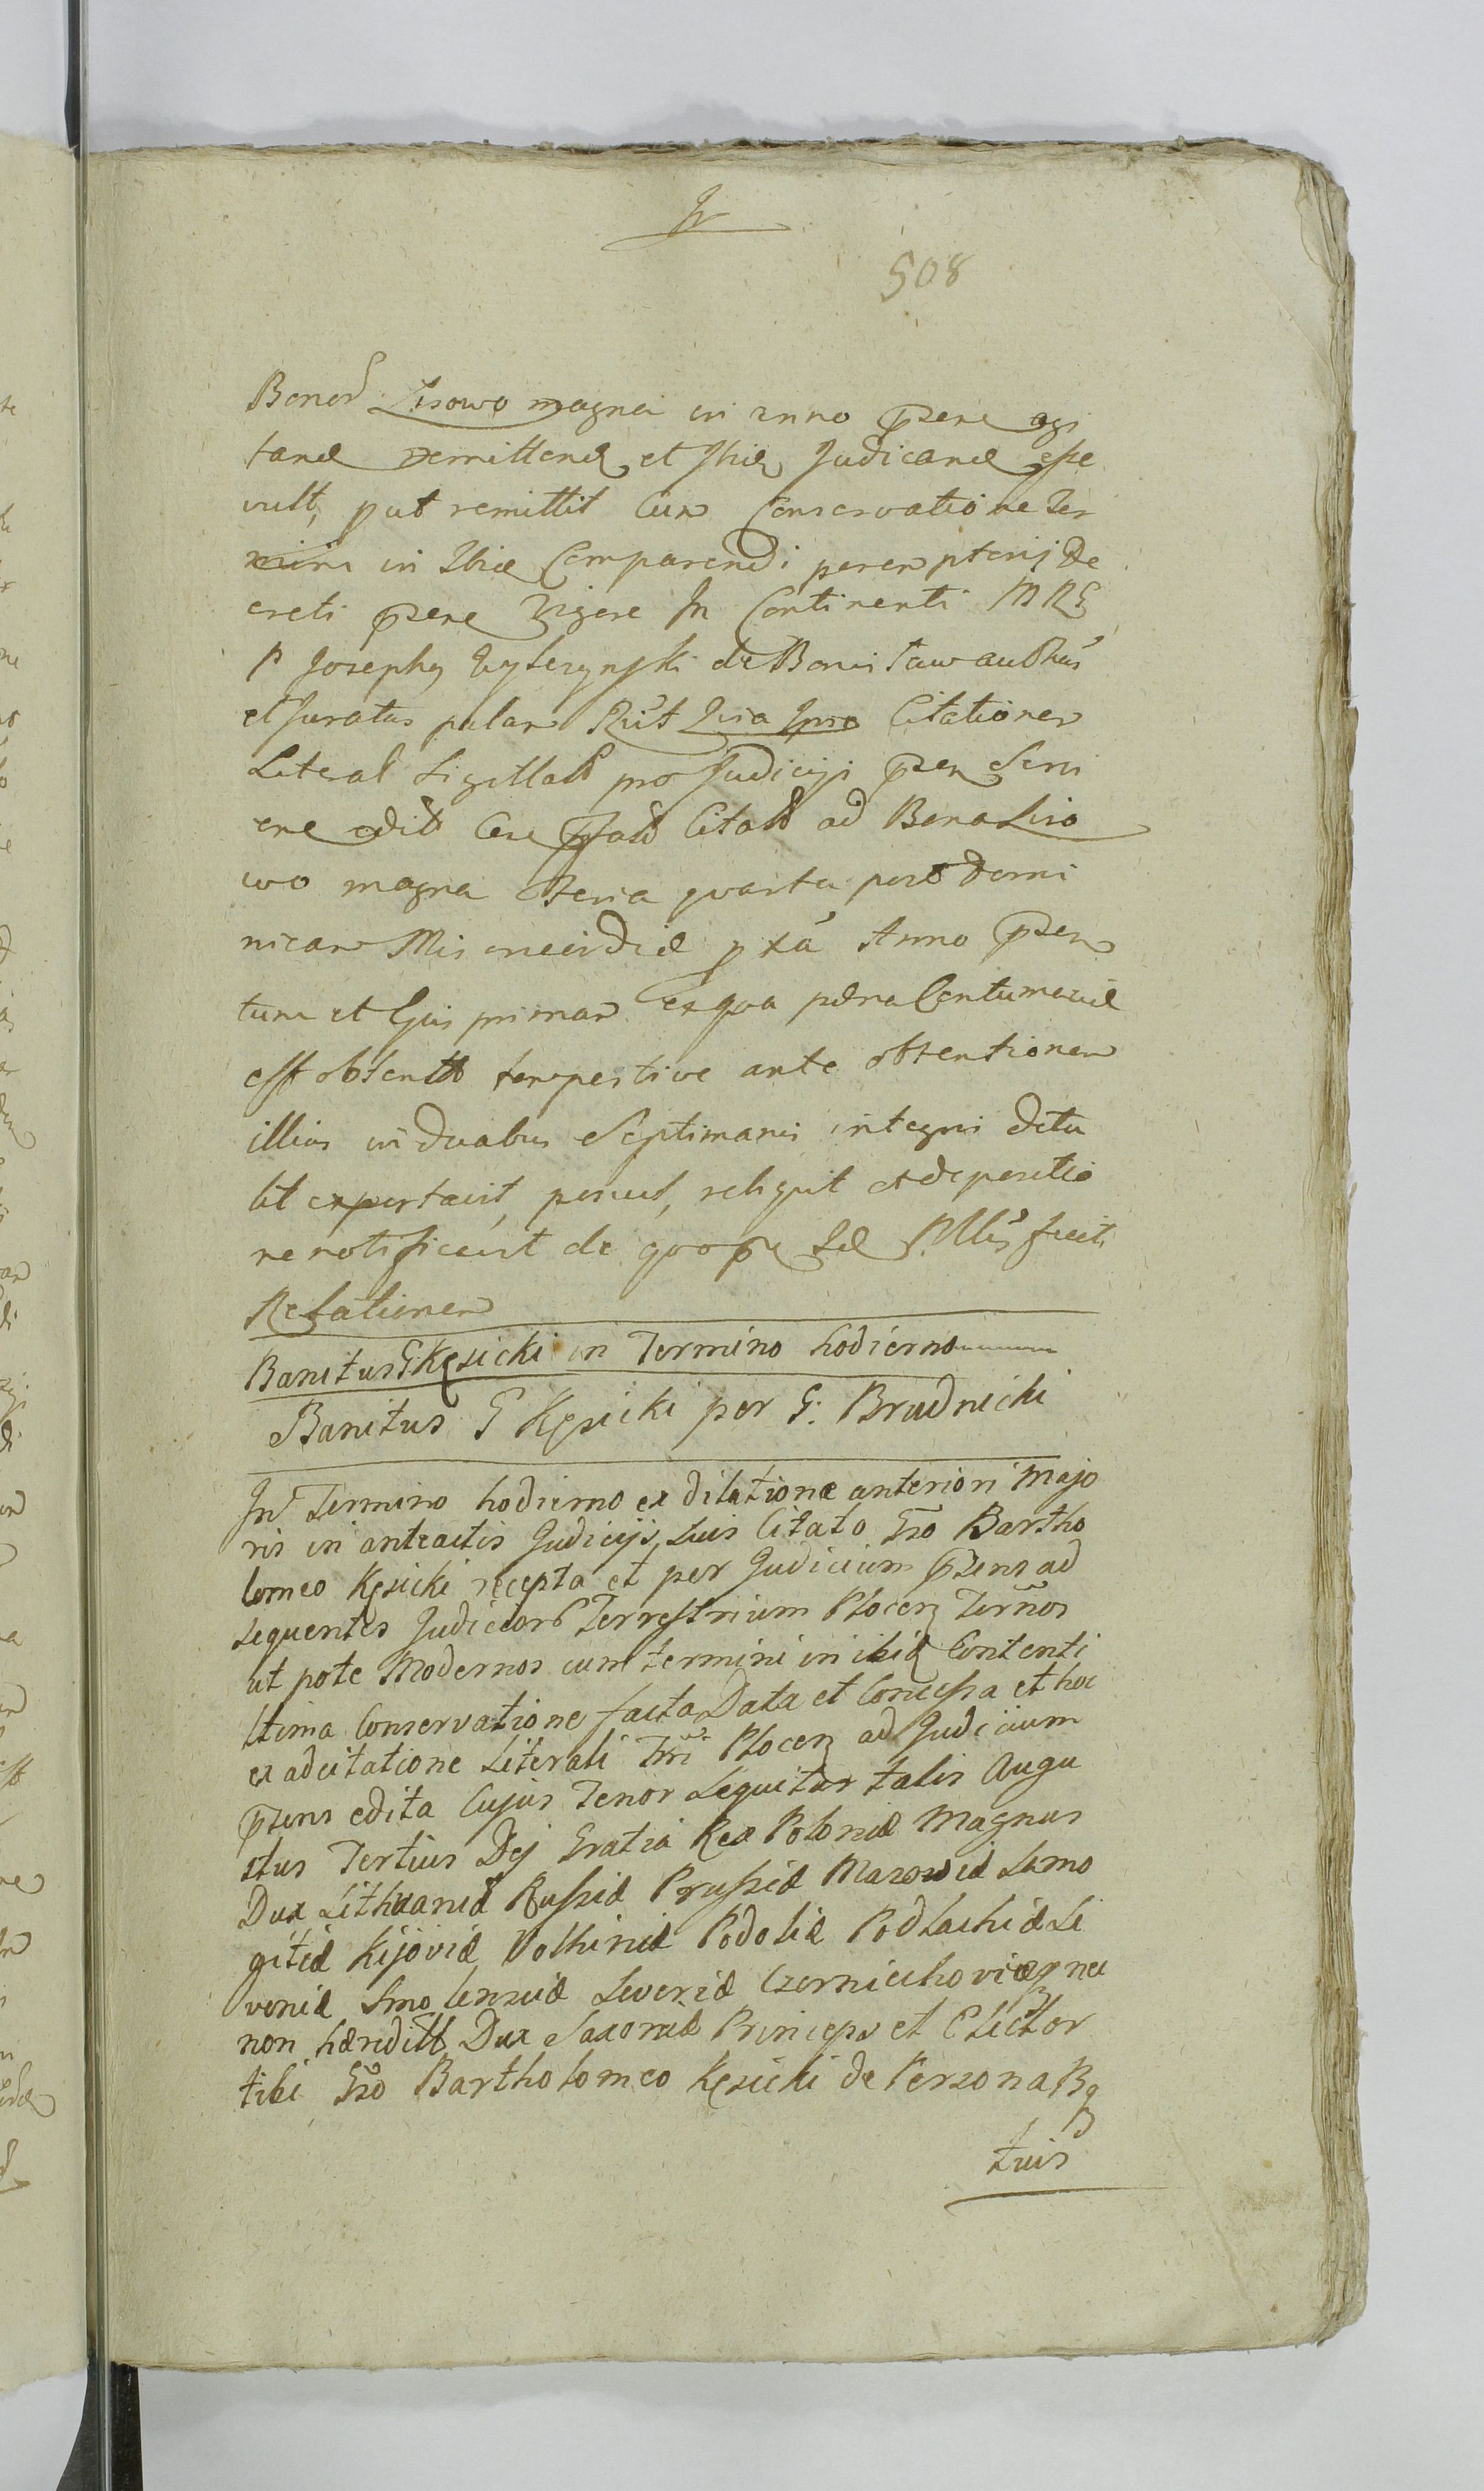 508
Bonor Lisowo magna in anno pnsene agi
tand remittend et Ibid Judicand esse
vult, put remittit Cum Conservatione Ter
mini in Ibid Comparendi peremptorij De
creti pnsene vigore In Continenti MRG
P Josephg de Bonis
et Juratus palam Rct Quia Ipse Citationem
Literal Sigillatt pro Judicijs pnsen
ene edit ad Bona Liso
wo magna Feria quarta post Domi
nicam Misericordiæ pxa Anno pnsen
tium et Gus primam ex qua pæna Centum
est obtentt tempestive ante obtentionem
illius in duabus Septimanis integris detu
lit exportavit, posuit, reliquit et depositio
ne notificavit de quo pr fecit
Relationem
Banitus G Kęsicki in Termino hodierno
Banitus G Kęsicki per G. Brudnicki
In Termino hodierno ex dilatione anteriori Majo
ris in anteactis Judicijs, suis Citato Gso Bartho
lomeo Kęsicki recepta et per Judicium pnsens ad
sequentes Judicior Terrestrium Plocen Terños
ut pote Modernos cum termini in ibid Contenti
ltima Conservatione facta Data et Concessa et hoc
ex adcitatione Literali Tri Plocen ad Judicium
pnsens edita Cujus Tenor Sequitur talis Augu
stus Tertius Dej Gratia Rex Poloniæ Magnus
Dux Lithvaniæ Russiæ Prussiæ Masoviæ Samo
gitiæ Kijoviæ Volhiniæ Podoliæ Podlachiæ Li
voniæ Smolensciæ Severiæ Czerniechoviæq nec
non hæreditt Dux Saxoniæ Princeps et Elector
tibi Gso Bartholomeo Kęsicki de Persona Bq
tuis